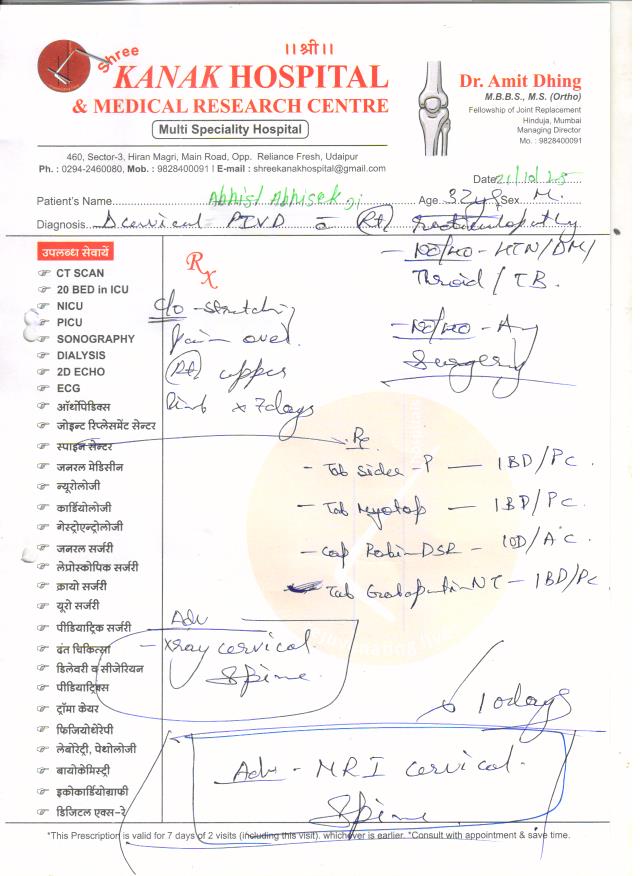 ।।श्री।।
Shree
KANAK HOSPITAL
& MEDICAL RESEARCH CENTRE
Multi Speciality Hospital
460, Sector-3, Hiran Magri, Main Road, Opp. Reliance Fresh, Udaipur
Ph. : 0294-2460080, Mob. : 9828400091 | E-mail : shreekanakhospital@gmail.com
Dr. Amit Dhing
M.B.B.S., M.S. (Ortho)
Fellowship of Joint Replacement
Hinduja, Mumbai
Managing Director
Mo. : 9828400091
Date 21/10/25
Patient's Name Abhisekji Age 32yrs Sex M.
Diagnosis cervical PIVD Rt Radiculopathy
उपलब्ध सेवायें
CT SCAN
20 BED in ICU
NICU
PICU
SONOGRAPHY
DIALYSIS
2D ECHO
ECG
ऑर्थोपिडिक्स
जोइन्ट रिप्लेसमेंट सेन्टर
स्पाइन सेन्टर
जनरल मेडिसीन
न्यूरोलोजी
कार्डियोलोजी
गेस्ट्रोएन्ट्रोलोजी
जनरल सर्जरी
लेप्रोस्कोपिक सर्जरी
क्रायो सर्जरी
यूरो सर्जरी
पीडियाट्रिक सर्जरी
दंत चिकित्सा
डिलेवरी व सीजेरियन
पीडियाट्रिक्स
ट्रॉमा केयर
फिजियोथेरेपी
लेबोरेट्री, पेथोलोजी
बायोकेमिस्ट्री
इकोकार्डियोग्राफी
डिजिटल एक्स-रे
Rx
- HTN/DM/
Throid/TB.
- Any
Surgery
c/o - stretching
pain over
Rt upper
limb x 7days
Rx
- Tab - P — 1BD/PC.
- Tab Myotop — 1BD/PC.
- cap Rabi-DSR - 1OD/AC.
- Tab NT - 1BD/PC
Adv
- Xray cervical
Spine
10days
Adv - MRI cervical
Spine
*This Prescription is valid for 7 days of 2 visits (including this visit). whichever is earlier. *Consult with appointment & save time.